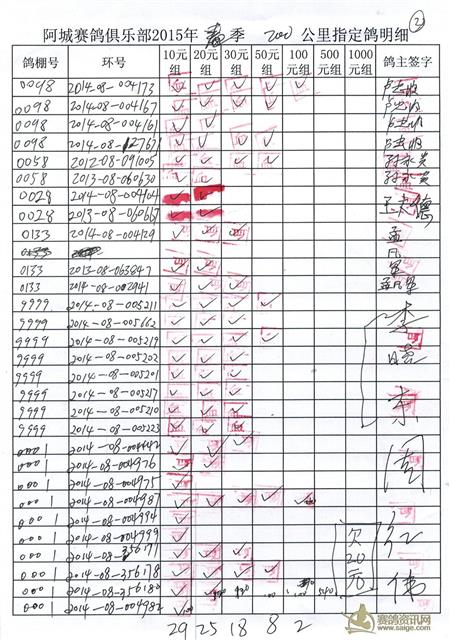 ②
阿城赛鸽俱乐部2015年春季 200公里指定鸽明细
鸽棚号 环号 10元组 20元组 30元组 50元组 100元组 500元组 1000元组 鸽主签字
0098 2014-08-004173 ✓ ✓ ✓ ✓ ✓
0098 2014-08-004167 ✓ ✓ ✓ ✓
0098 2014-08-004161 ✓ ✓
0098 2014-08-127631 ✓ ✓ ✓ ✓
0058 2012-08-091005 ✓ ✓ ✓ ✓
0058 2013-08-060630 ✓ ✓
0028 2014-08-004104 ✓ ✓
0028 2013-08-060667 ✓ ✓
0133 2014-08-004129 ✓ ✓ ✓ 孟
0133 凡
0133 2013-08-063847 ✓ ✓ 军
0133 2014-08-002941 ✓ ✓ ✓ 孟凡军
9999 2014-08-005211 ✓ ✓ ✓ ✓ 李
9999 2014-08-005662 ✓ ✓ ✓
9999 2014-08-005219 ✓ ✓ ✓ ✓
9999 2014-08-005202 ✓ ✓ ✓
9999 2014-08-005201 ✓ ✓ ✓
9999 2014-08-005217 ✓ ✓ ✓
9999 2014-08-005210 ✓ ✓ ✓
9999 2014-08-005223 ✓ ✓ ✓
0001 2014-08-004442 ✓ ✓ ✓
0001 2014-08-004976 ✓ ✓
0001 2014-08-004975 ✓
0001 2014-08-004987 ✓ ✓ ✓ ✓ ✓
0001 2014-08-004994 ✓
0001 2014-08-004999 ✓
0001 2014-08-356177 ✓ ✓ ✓ 欠
0001 2014-08-356178 ✓ ✓ ✓ ✓ 20
0001 2014-08-356180 ✓ ✓ 元 伟
0001 2014-08-004982 ✓
29 25 18 8 2
赛鸽资讯网
www.saige.com